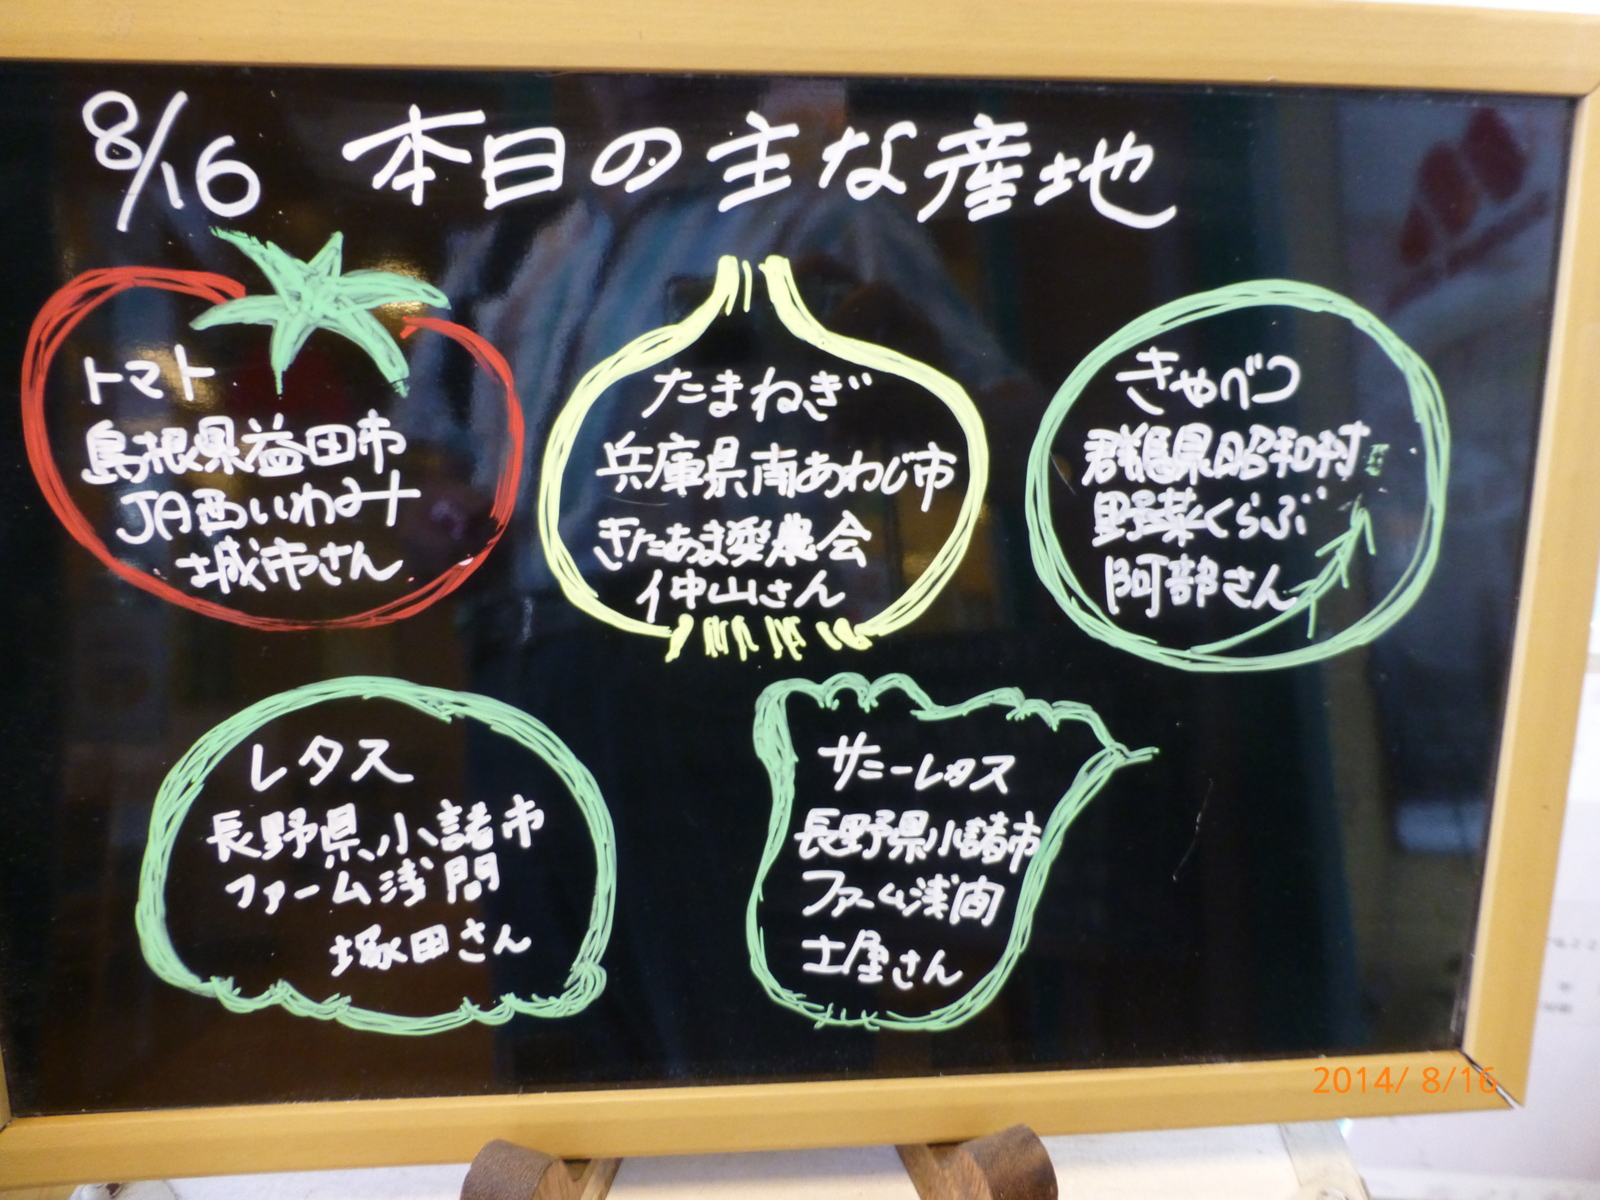 8/16 本日の主な産地
トマト
島根県益田市
JA西いわみ
城市さん
たまねぎ
兵庫県南あわじ市
きたあま愛農会
仲山さん
きゃべつ
群馬県昭和村
野菜くらぶ
阿部さん
レタス
長野県小諸市
ファーム浅間
塚田さん
サニーレタス
長野県小諸市
ファーム浅間
土屋さん
2014/ 8/16